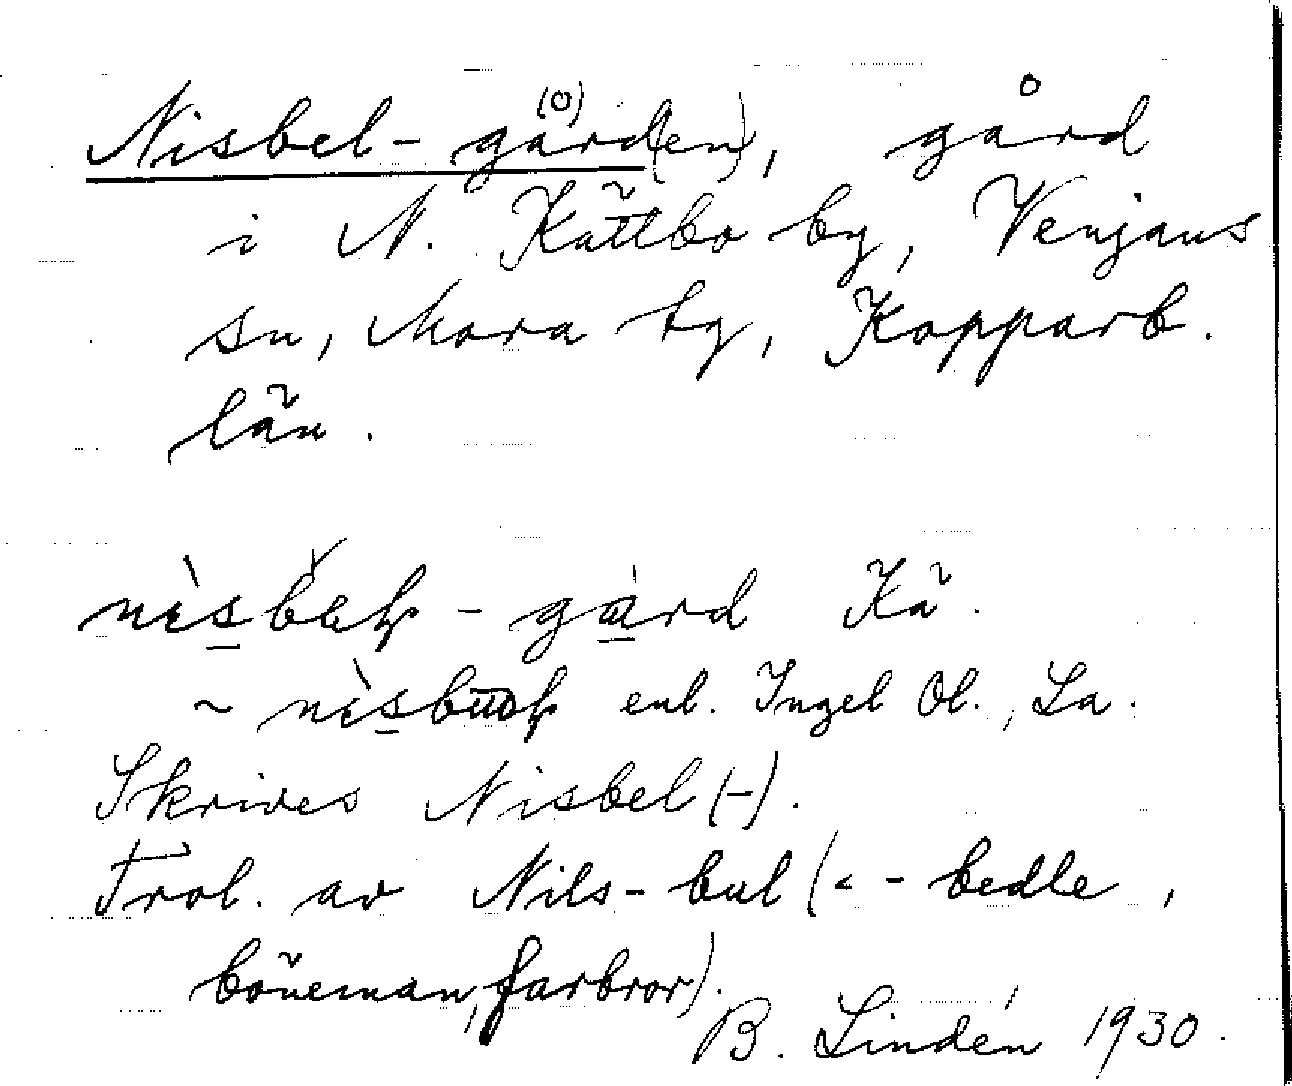 Nisbel-gård(en), gård
i N. Kättbo by, Venjans
sn, Mora tg, Kopparb.
län.
- gård Kä.
~ enl. Ingel Ol., La.
Skrives Nisbel(-).
Trol. av Nils-bul (< -bedle,
böneman, farbror).
B. Lindén 1930.